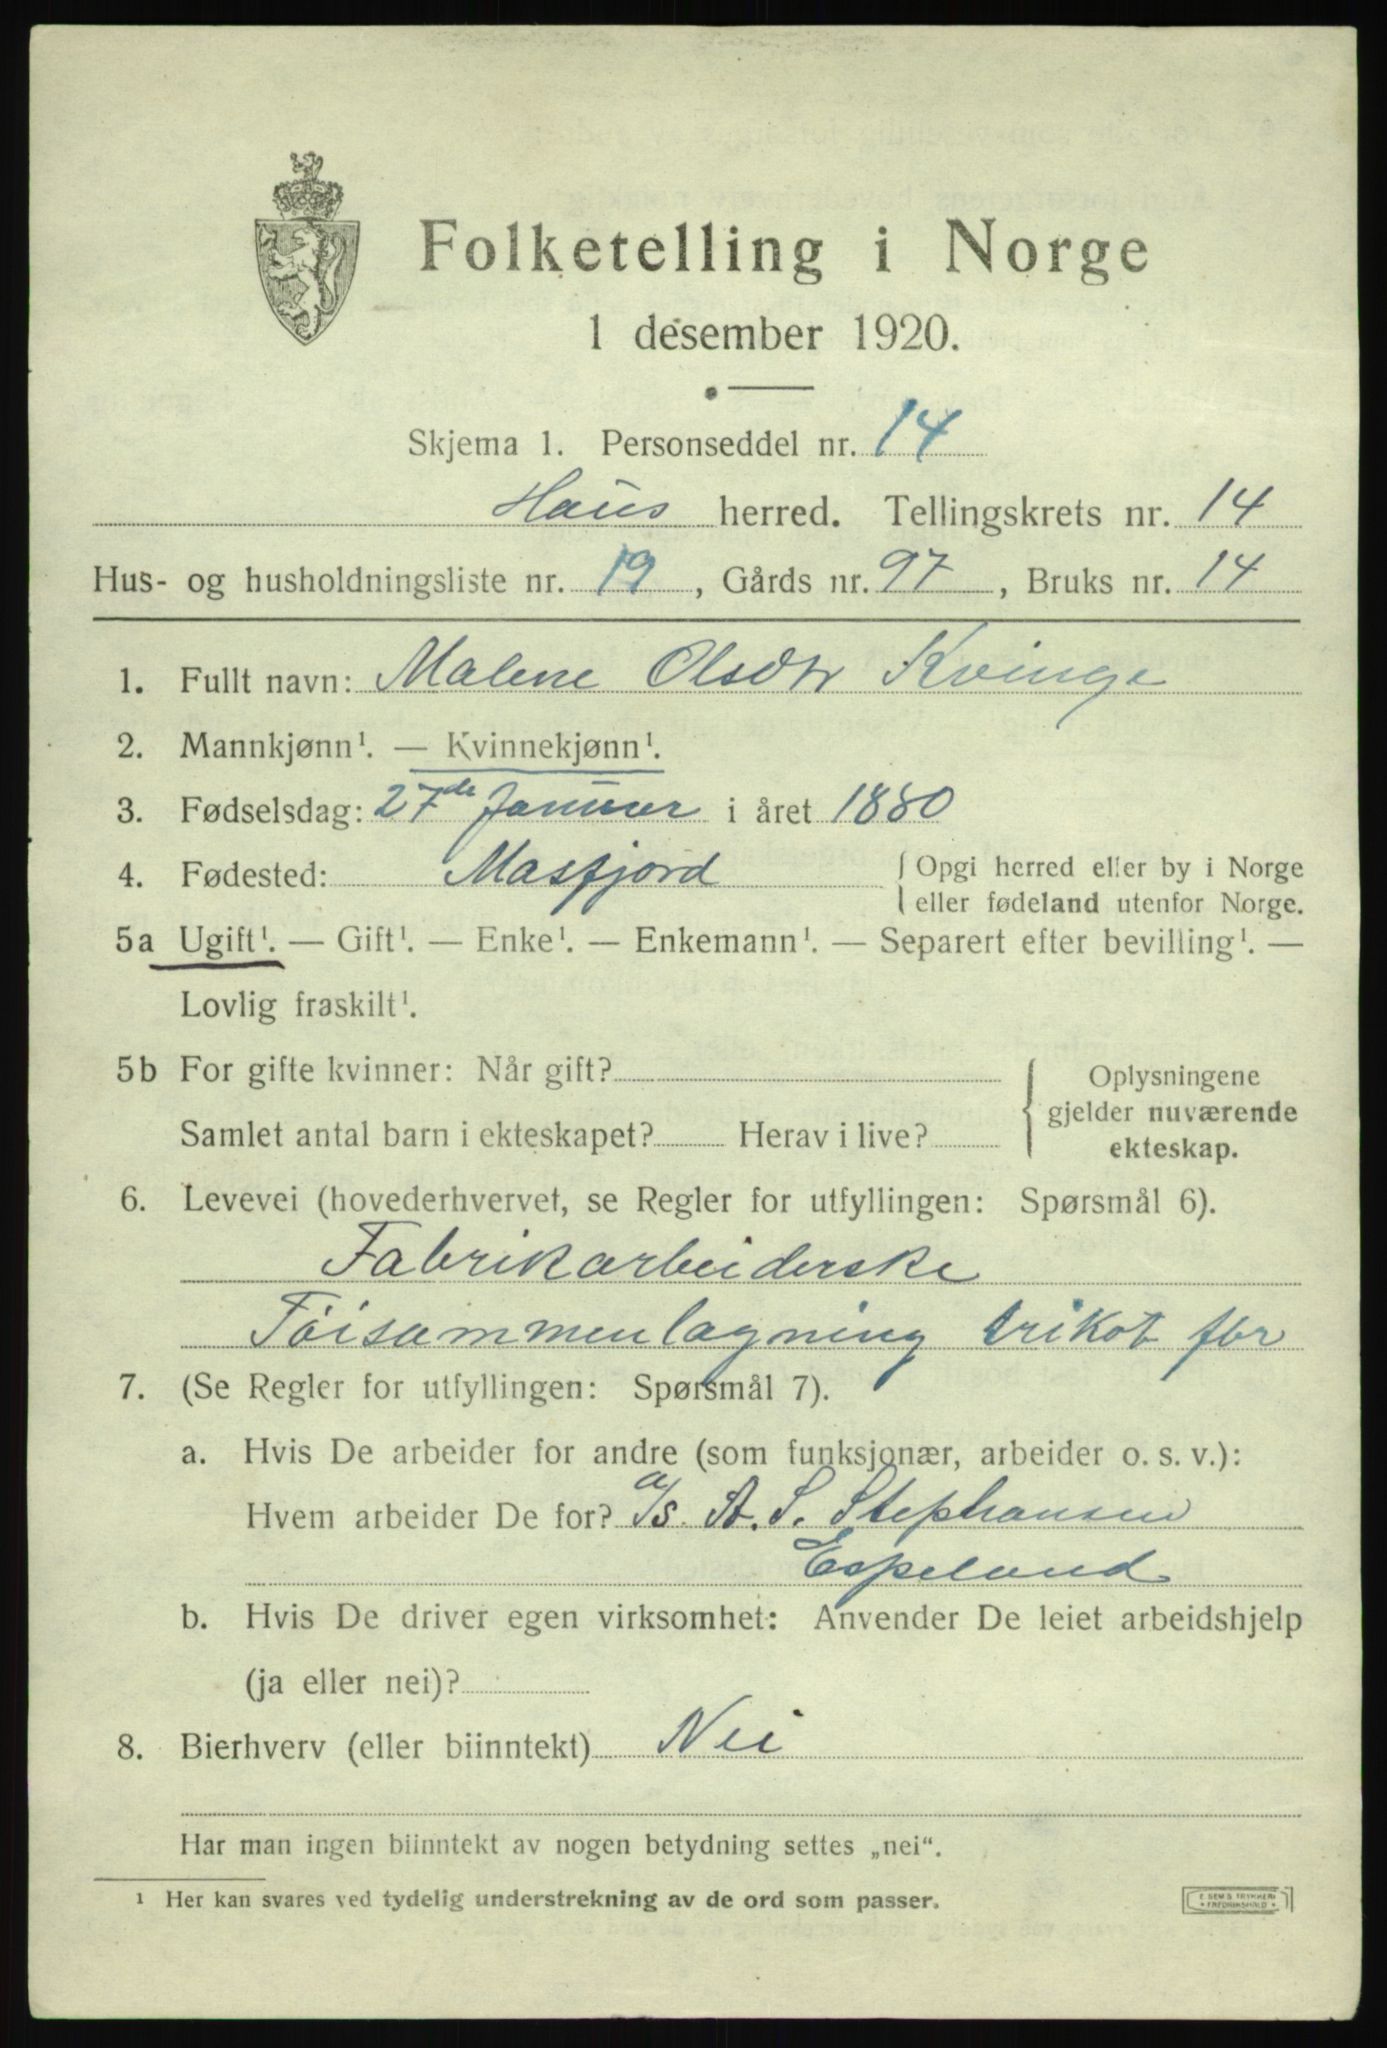 Folketelling i Norge
1 desember 1920.
Skjema 1. Personseddel nr. 14
Haus herred. Tellingskrets nr. 14
Hus- og husholdningsliste nr. 19, Gårds nr. 97, Bruks nr. 14
1. Fullt navn: Malene Olsdtr Kvinge
2. Mannkjønn¹. — Kvinnekjønn¹.
3. Fødselsdag: 27de Januar i året 1880
4. Fødested: Masfjord { Opgi herred eller by i Norge
eller fødeland utenfor Norge.
5a Ugift¹. — Gift¹. — Enke¹. — Enkemann¹. — Separert efter bevilling¹. —
Lovlig fraskilt¹.
5b For gifte kvinner: Når gift?
Samlet antal barn i ekteskapet? Herav i live?
Oplysningene
gjelder nuværende
ekteskap.
6. Levevei (hovederhvervet, se Regler for utfyllingen: Spørsmål 6).
Fabrikarbeiderske
Tøisammenlagning trikot fbr
7. (Se Regler for utfyllingen: Spørsmål 7).
a. Hvis De arbeider for andre (som funksjonær, arbeider o. s. v.):
Hvem arbeider De for? a/s. A. S. Stephansen
Espeland
b. Hvis De driver egen virksomhet: Anvender De leiet arbeidshjelp
(ja eller nei)?
8. Bierhverv (eller biinntekt) Nei
Har man ingen biinntekt av nogen betydning settes „nei“.
¹ Her kan svares ved tydelig understrekning av de ord som passer.
E. SEMS TRYKKERI
FREDRIKSHALD